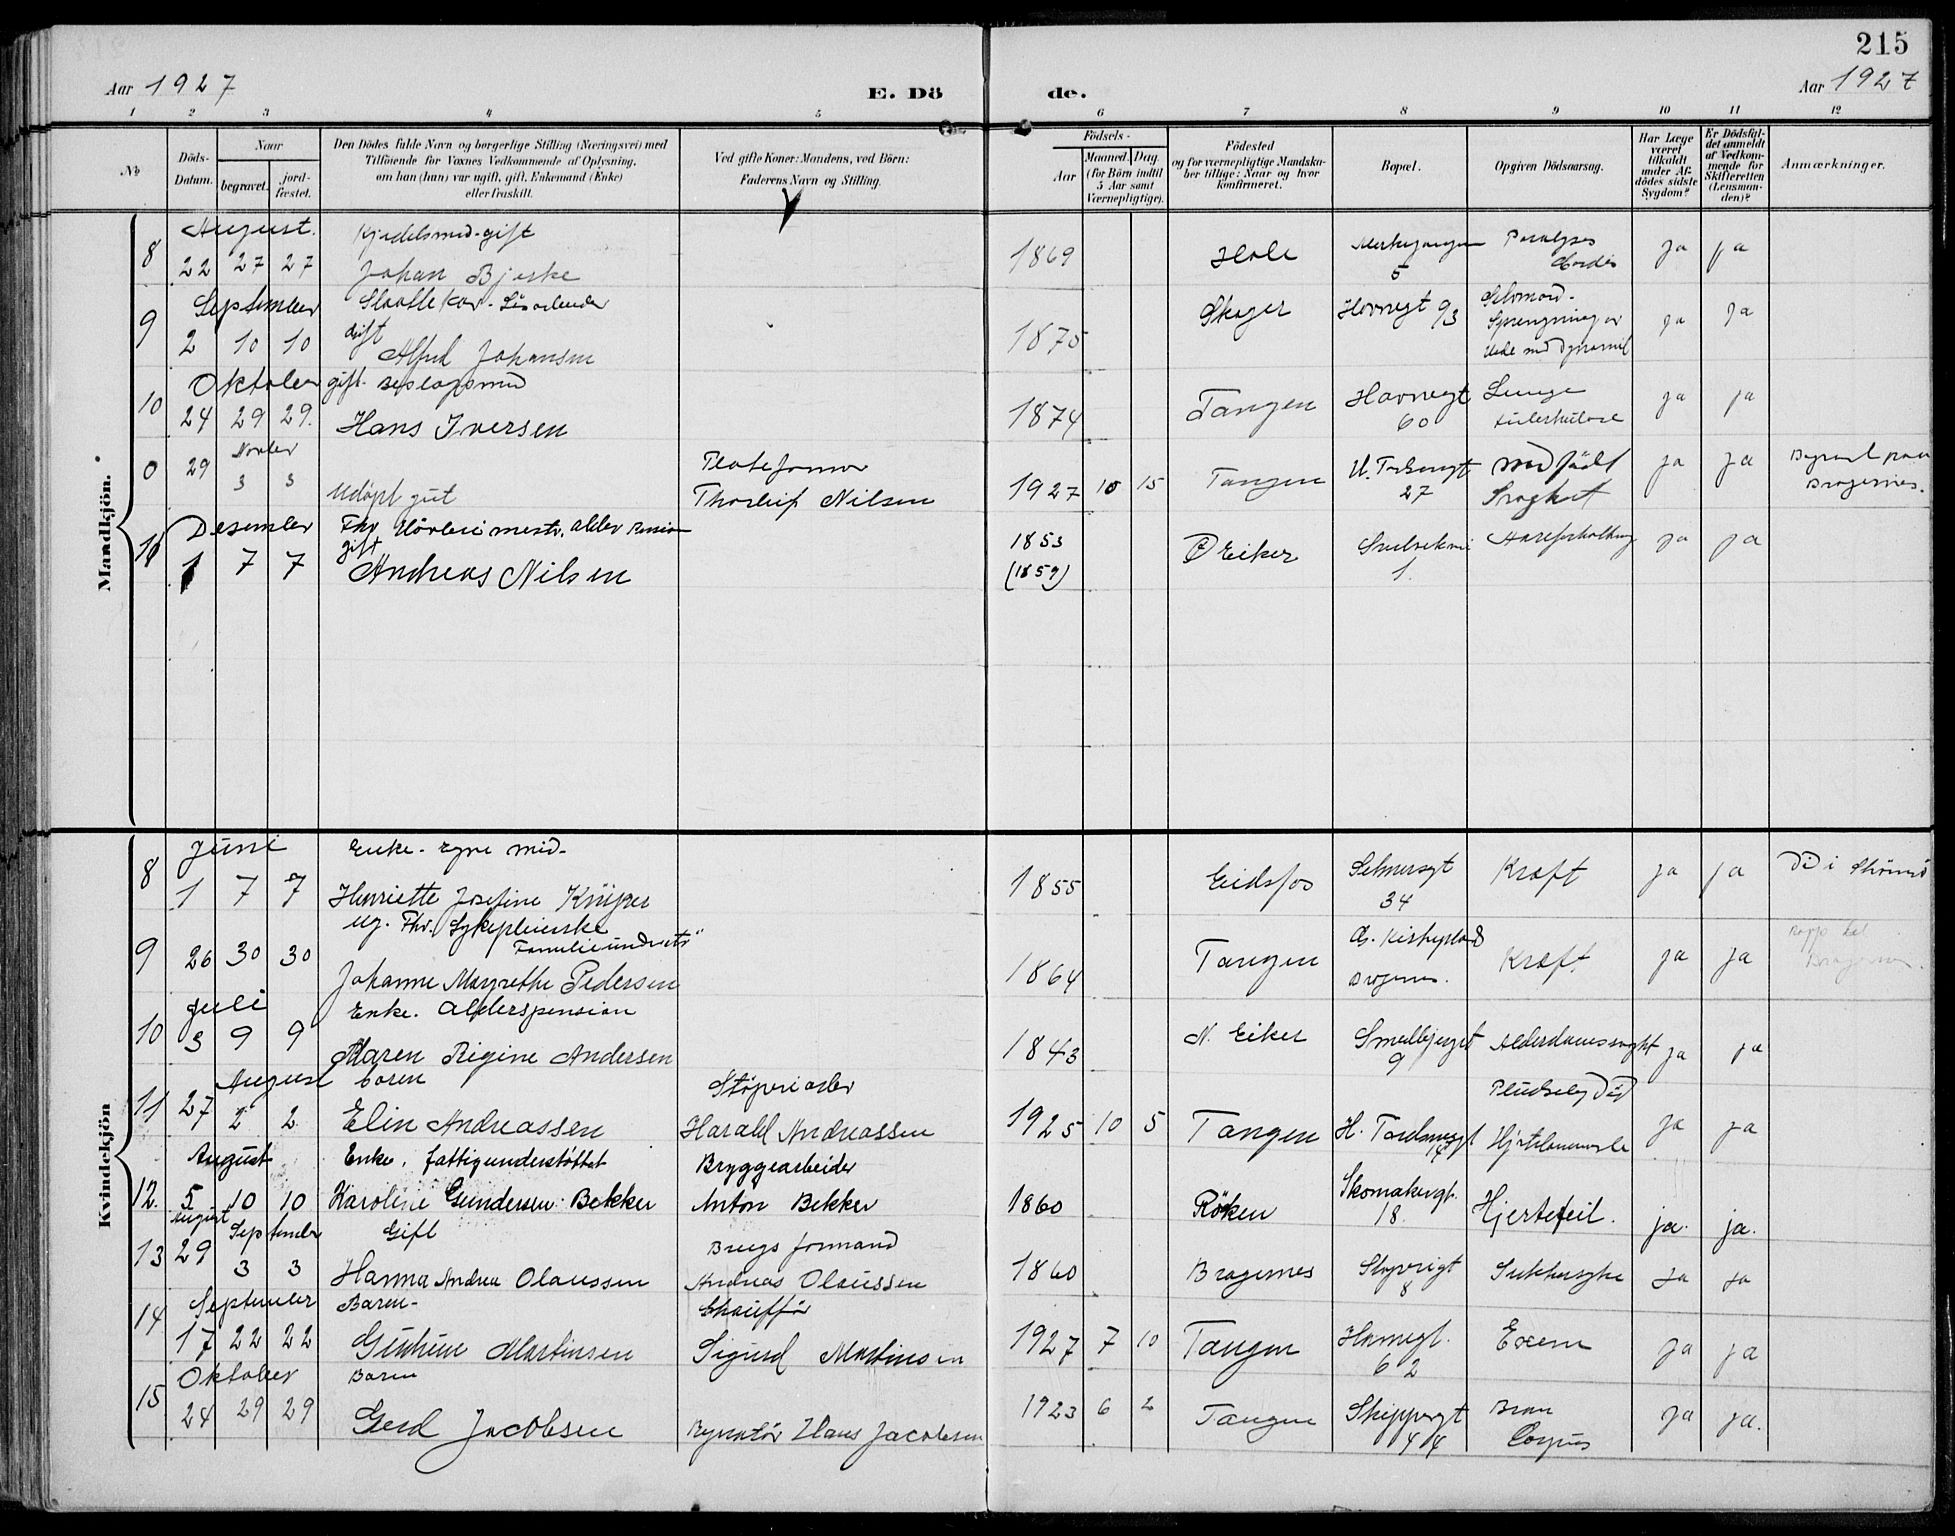 215
Aar 1927
E. Dö
de.
Aar 1927
1 2 3 4 5 6 7 8 9 10 11 12
No
Döds-Datum.
Naar
begravet.
jord-fæstet.
Den Dödes fulde Navn og borgerlige Stilling (Næringsvei) med
Tilföiende for Voxnes Vedkommende af Oplysning,
om han (hun) var ugift, gift, Enkemand (Enke)
eller fraskilt.
Ved gifte Koner: Mandens, ved Börn:
Faderens Navn og Stilling.
Födsels-
Aar
Maaned. Dag.
(for Börn indtil
5 Aar samt
Værnepligtige).
Födested
og for værnepligtige Mandska-
ber tillige: Naar og hvor
konfirmeret.
Bopæl.
Opgiven Dödsaarsag.
Har Læge
været
tilkaldt
under Af-
dödes sidste
Sygdom?
Er Dödsfal-
det anmeldt
af Vedkom-
mende for
Skifteretten
(Lensman-
den)?
Anmærkninger.
Mandkjön.
August.
gift
8 22 27 27 Johan Bjerke 1869 Hole 5 Paralyses Cordis ja ja
September
gift
9 2 10 10 Alfred Johansen 1875 Skoger Havnegt 93 Selvmord. ja ja
Oktober gift
10 24 29 29. Hans Iversen 1874 Tangen Havnegt 60 Lunge tuberkulose ja ja
0 29 3 3 Udøpt gut Thorleif Nilsen 1927 10 15 Tangen 27 medfødt Svaghet ja ja Begravet paa Bragernes.
Desember Fhv. gift
11 1 7 7 Andreas Nilsen 1853 (1859) Eiker Svelvikvei 1. Aareforkalkning ja ja
Kvindekjön
Juni Enke -
8 1 7 7 Henriette Josefine Krüger 1855 Eidsfos Selmersgt 34 Kræft ja ja
ug. Fhv. Sykepleierske
9 26 30 30 Johanne Margrethe Pedersen 1864 Tangen Kræft. ja ja
Juli Enke. Alderspension
10 3 9 9 Maren Regine Andersen 1843 N. Eiker Smedbjerget 9 Alderdomssvaght ja ja
August Barn Støperiarb
11 27 2 2 Elin Andreassen Harald Andreassen 1925 10 5 Tangen Pludselig Død ja ja
August Enke, fattigunderstøttet Bryggearbeider
12. 5 10 10 Karoline Gundersen Bekker Anton Bekker 1860 Röken Skomakergt. 18. Hjertefeil. ja. ja.
August September Gift Brugsformand
13 29 3 3 Hanna Andrea Olaussen Andreas Olaussen 1860 Bragernes 8 Sukkersyke ja ja
September Barn - Chauffør
14 17 22 22 Martinsen Sigurd Martinsen 1927 7 10 Tangen Havnegt. 62 Exem ja ja
Oktober Barn
15 24 29 29 Gerd Jacobsen Hans Jacobsen 1923 6 2 Tangen Skippergt 44 ja ja.